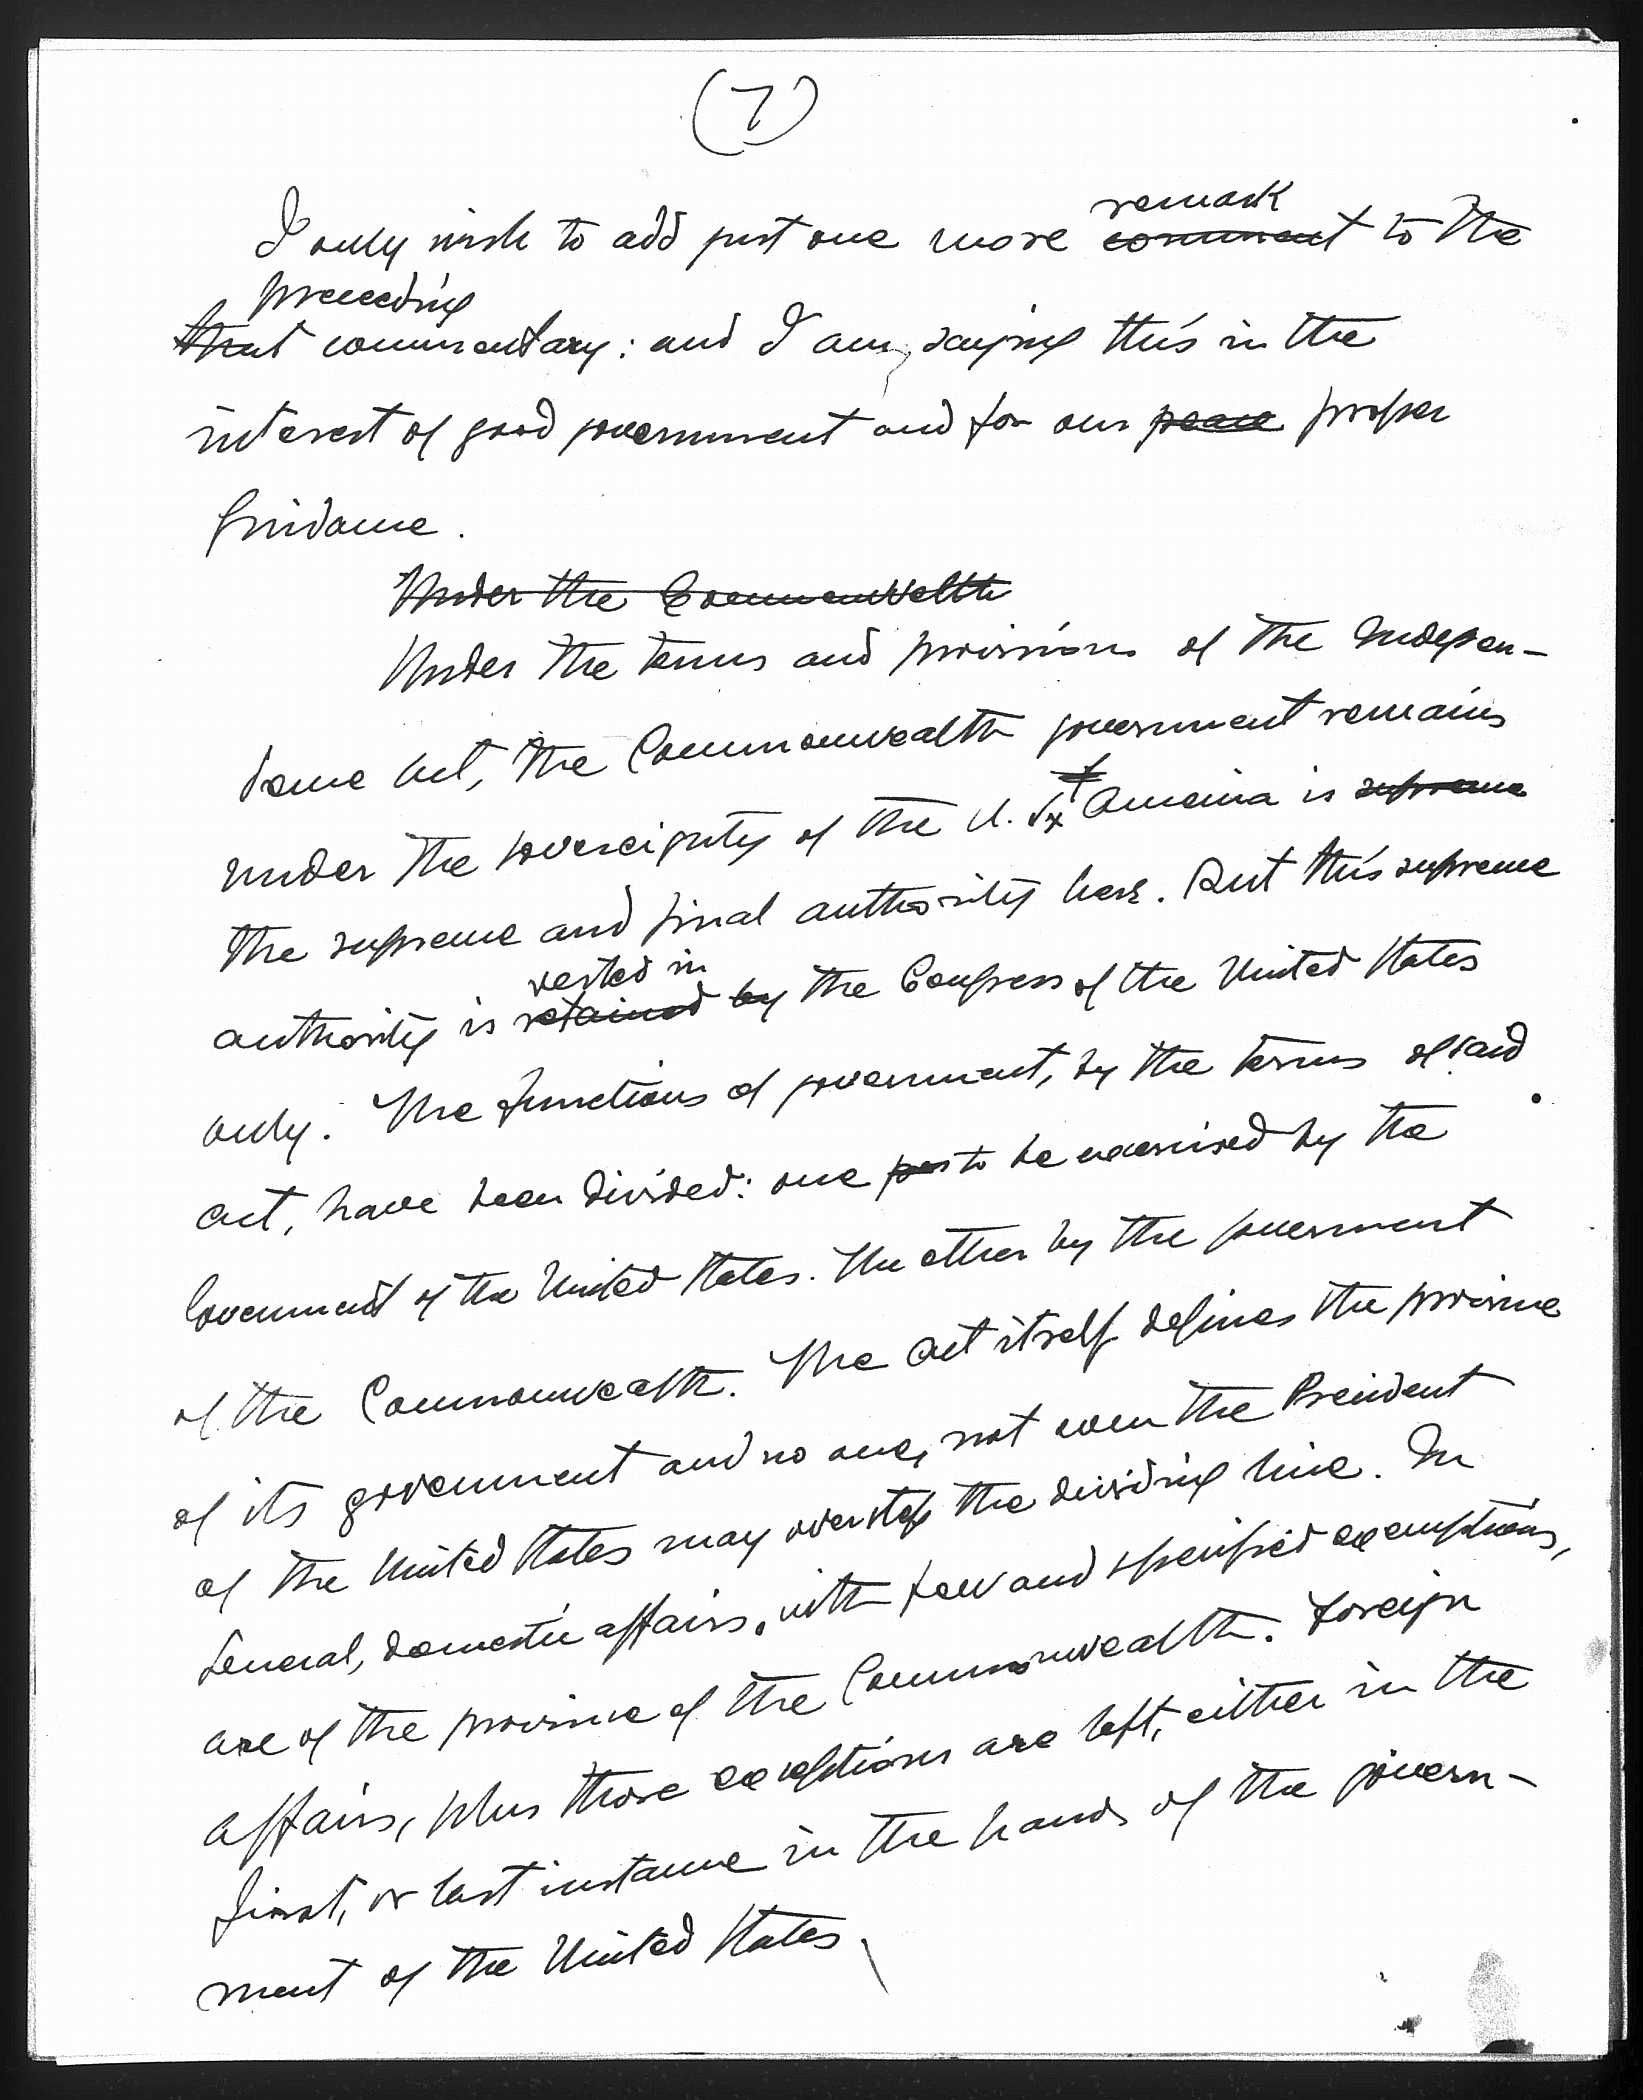 (7)
remark
I only wish to add just one more comment to the
preceeding
that commentary: and I am saying this in the
interest of good government and for our peace proper
guidance.
Under the Commonwelth
Under the terms and provisions of the Indepen-
dence Act, the Commonwealth government remains
under the sovereignty of the U. S. America is supreme
the supreme and final authority here. But this supreme
vested in
authority is retained by the Congress of the United States
only. The functions of government, by the terms of said
act, have been divided: one to be exercised by the
Government of the United States. The other by the government
of the Commonwealth. The Act itself defines the province
of its government and no one, not even the President
of the United States may overstep the dividing line. In
General, domestic affairs, with few and specified exemptions,
are of the province of the Commonwealth. Foreign
affairs, plus those exceptions are left, either in the
first, or last instance in the hands of the govern-
ment of the United States.